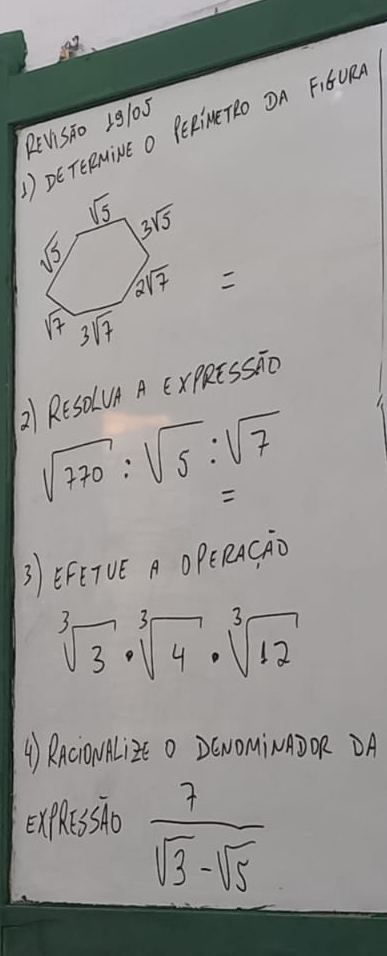 REVISÃO 19/05
1) DETERMINE O PERÍMETRO DA FIGURA
√5
√5 3√5
2√7 =
√7 3√7
2) RESOLVA A EXPRESSÃO
√770 : √5 : √7
=
3) EFETUE A OPERAÇÃO
∛3 • ∛4 • ∛12
4) RACIONALIZE O DENOMINADOR DA
EXPRESSÃO 7
√3 - √5